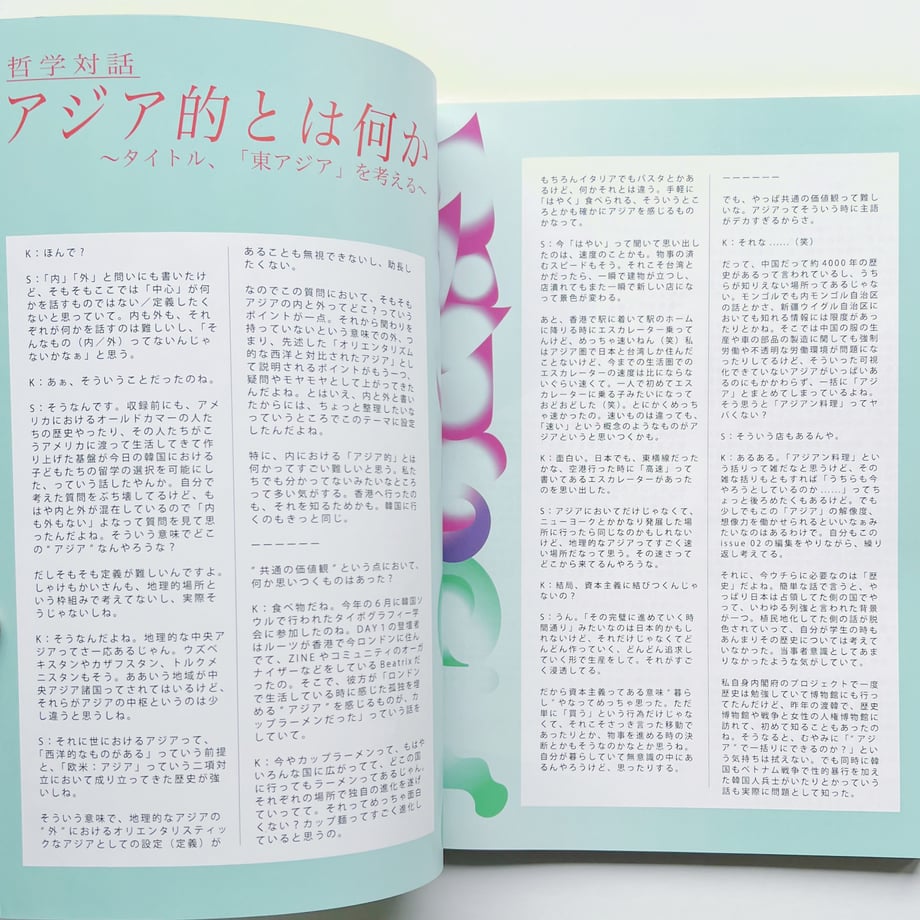 哲学対話
アジア的とは何か
〜タイトル、「東アジア」を考える〜
K：ほんで？
S：「内」「外」と問いにも書いたけ
ど、そもそもここでは「中心」が何
かを話すものではない／定義したくな
いと思っていて。内も外も、それ
ぞれが何かを話すのは難しいし、「そ
んなもの（内／外）ってないんじゃ
ないかなぁ」と思う。
K：あぁ、そういうことだったのね。
S：そうなんです。収録前にも、アメ
リカにおけるオールドカマーの人た
ちの歴史やったり、その人たちがこ
うアメリカに渡って生活してきて作
り上げた基盤が今日の韓国における
子どもたちの留学の選択を可能にし
た、っていう話したやんか。自分で
考えた質問をぶち壊してるけど、も
はや内と外が混在しているので「内
も外もない」よなって質問を見て思
ったんだよね。そういう意味でどこ
の“アジア”なんやろうな？
だしそもそも定義が難しいんですよ。
しゃけもかいさんも、地理的場所と
いう枠組みで考えてないし、実際そ
うじゃないしね。
K：そうなんだよね。地理的な中央ア
ジアってさ一応あるじゃん。ウズベ
キスタンやカザフスタン、トルクメ
ニスタンもそう。ああいう地域が中
央アジア諸国ってされてはいるけど、
それらがアジアの中枢というのは少
し違うと思うしね。
S：それに世におけるアジアって、
「西洋的なものがある」っていう前提
と、「欧米：アジア」っていう二項対
立において成り立ってきた歴史が強
いしね。
そういう意味で、地理的なアジアの
“外”におけるオリエンタリスティッ
クなアジアとしての設定（定義）が
あることも無視できないし、助長し
たくない。
なのでこの質問において、そもそも
アジアの内と外ってどこ？っていう
ポイントが一点。それから関わりを
持っていないという意味での外、つ
まり、先述した「オリエンタリズム
的な西洋と対比されたアジア」とし
て説明されるポイントがもう一つ、
疑問やモヤモヤとして上がってきた
んだよね。とはいえ、内と外と書い
たからには、ちょっと整理したいな
っていうところでこのテーマに設定
したんだよね。
特に、内における「アジア的」とは
何かってすごい難しいと思う。私た
ちでも分かってないみたいなところ
って多い気がする。香港へ行ったの
も、それを知るためかも。韓国に行
くのもきっと同じ。
ーーーーーー
“共通の価値観”という点において、
何か思いつくものはあった？
K：食べ物だね。今年の６月に韓国ソ
ウルで行われたタイポグラフィー学
会に参加したのね。DAY1の登壇者
はルーツが香港で今ロンドンに住ん
でて、ZINEやコミュニティのオーガ
ナイザーなどをしているBeatrixだ
ったの。そこで、彼方が「ロンドン
で生活している時に感じた孤独を埋
める“アジア”を感じるものが、カ
ップラーメンだった」っていう話を
していて。
K：今やカップラーメンって、もはや
いろんな国に広がってて、どこの国
に行ってもラーメンってあるじゃん。
それぞれの場所で独自の進化を遂げ
ていってて。それってめっちゃ面白
くない？カップ麺ってすごく進化し
ていると思うの。
もちろんイタリアでもパスタとかあ
るけど、何かそれとは違う。手軽に
「はやく」食べられる、そういうとこ
ろとかも確かにアジアを感じるもの
かなって。
S：今「はやい」って聞いて思い出し
たのは、速度のことかも。物事の済
むスピードもそう。それこそ台湾と
かだったら、一瞬で建物が立つし、
店潰れてもまた一瞬で新しい店にな
って景色が変わる。
あと、香港で駅に着いて駅のホーム
に降りる時にエスカレーター乗って
んけど、めっちゃ速いねん（笑）私
はアジア圏で日本と台湾しか住んだ
ことないけど、今までの生活圏での
エスカレーターの速度は比にならな
いぐらい速くて。一人で初めてエス
カレーターに乗る子みたいになって
おどおどした（笑）。とにかくめっち
ゃ速かったの。速いものは違っても、
「速い」という概念のようなものがア
ジアというと思いつくかも。
K：面白い。日本でも、東横線だった
かな、空港行った時に「高速」って
書いてあるエスカレーターがあった
のを思い出した。
S：アジアにおいてだけじゃなくて、
ニューヨークとかかなり発展した場
所に行ったら同じなのかもしれない
けど、地理的なアジアってすごく速
い場所だなって思う。その速さって
どこから来てるんやろうな。
K：結局、資本主義に結びつくんじゃ
ないの？
S：うん。「その完璧に進めていく時
間通り」みたいなのは日本的かもし
れないけど、それだけじゃなくてど
んどん作っていく、どんどん追求し
ていく形で生産をして。それがすご
く浸透してる。
だから資本主義ってある意味“暮ら
し”やなってめっちゃ思った。ただ
単に「買う」という行為だけじゃな
くて、それこそさっき言った移動で
あったりとか、物事を進める時の決
断とかもそうなのかなとか思うね。
自分が暮らしていて無意識の中にあ
るんやろうけど、思ったりする。
ーーーーーー
でも、やっぱ共通の価値観って難し
いな。アジアってそういう時に主語
がデカすぎるからさ。
K：それな……（笑）
だって、中国だって約4000年の歴
史があるって言われているし、うち
らが知りえない場所ってあるじゃな
い。モンゴルでも内モンゴル自治区
の話とかさ、新疆ウイグル自治区に
おいても知れる情報には限度があっ
たりとかね。そこでは中国の服の生
産や車の部品の製造に関しても強制
労働や不透明な労働環境が問題にな
ったりしてるけど、そういった可視
化できていないアジアがいっぱいあ
るのにもかかわらず、一括に「アジ
ア」とまとめてしまっているよね。
そう思うと「アジアン料理」ってヤ
バくない？
S：そういう店もあるんや。
K：あるある。「アジアン料理」とい
う括りって雑だなと思うけど、その
雑な括りもともすれば「うちらも今
やろうとしているのか……」ってち
ょっと後ろめたくもあるけど。でも
少しでもこの「アジア」の解像度、
想像力を働かせられるといいなぁみ
たいなのはあるわけで。自分もこの
issue 02の編集をやりながら、繰り
返し考えてる。
それに、今ウチらに必要なのは「歴
史」だよね。簡単な話で言うと、や
っぱり日本は占領してた側の国でや
って、いわゆる列強と言われた背景
が一つ。植民地化してた側の話が脱
色されていって、自分が学生の時も
あんまりその歴史については考えて
いなかった。当事者意識としてあま
りなかったような気がしていて。
私自身内閣府のプロジェクトで一度
歴史は勉強していて博物館にも行っ
てたんだけど、昨年の渡韓で、歴史
博物館や戦争と女性の人権博物館に
訪れて、初めて知ることもあったの
ね。そうなると、むやみに「“アジ
ア”で一括りにできるのか？」とい
う気持ちは拭えない。でも同時に韓
国もベトナム戦争で性的暴行を加え
た韓国人兵士がいたりとかっていう
話も実際に問題として知った。